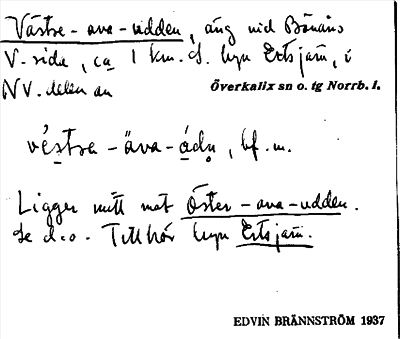 Västre-ava-udden, äng vid Bönäns
V. sida, ca 1 km. S. byn Ertsjärv, i
NV. delen av
Överkalix sn o. tg Norrb. l.
vèstre-äva-ádn, bf. m.
Ligger mitt mot Öster-ava-udden.
Se d:o. Tillhör byn Ertsjärv.
EDVIN BRÄNNSTRÖM 1937